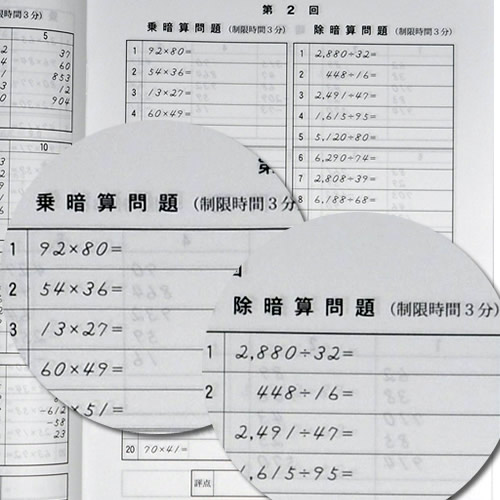 第 2 回
限時間3分)
乗 暗 算 問 題 (制限時間3分)
除 暗 算 問 題 (制限時間3分)
5
37
60
853
12
904
10
1 92×80=
2 54×36=
3 13×27=
4 60×49=
1 2,880÷32=
2 448÷16=
3 2,491÷47=
4 1,615÷95=
5 5,120÷80=
6 6,290÷74=
7 2,808÷39=
8 6,188÷68=
乗 暗 算 問 題 (制限時間3分
1 92×80=
2 54×36=
3 13×27=
60×49=
×51=
除 暗 算 問 題 (制限時間3分)
1 2,880÷32=
2 448÷16=
2,491÷47=
1,615÷95=
-612
-58
23
20 70×41=
評点